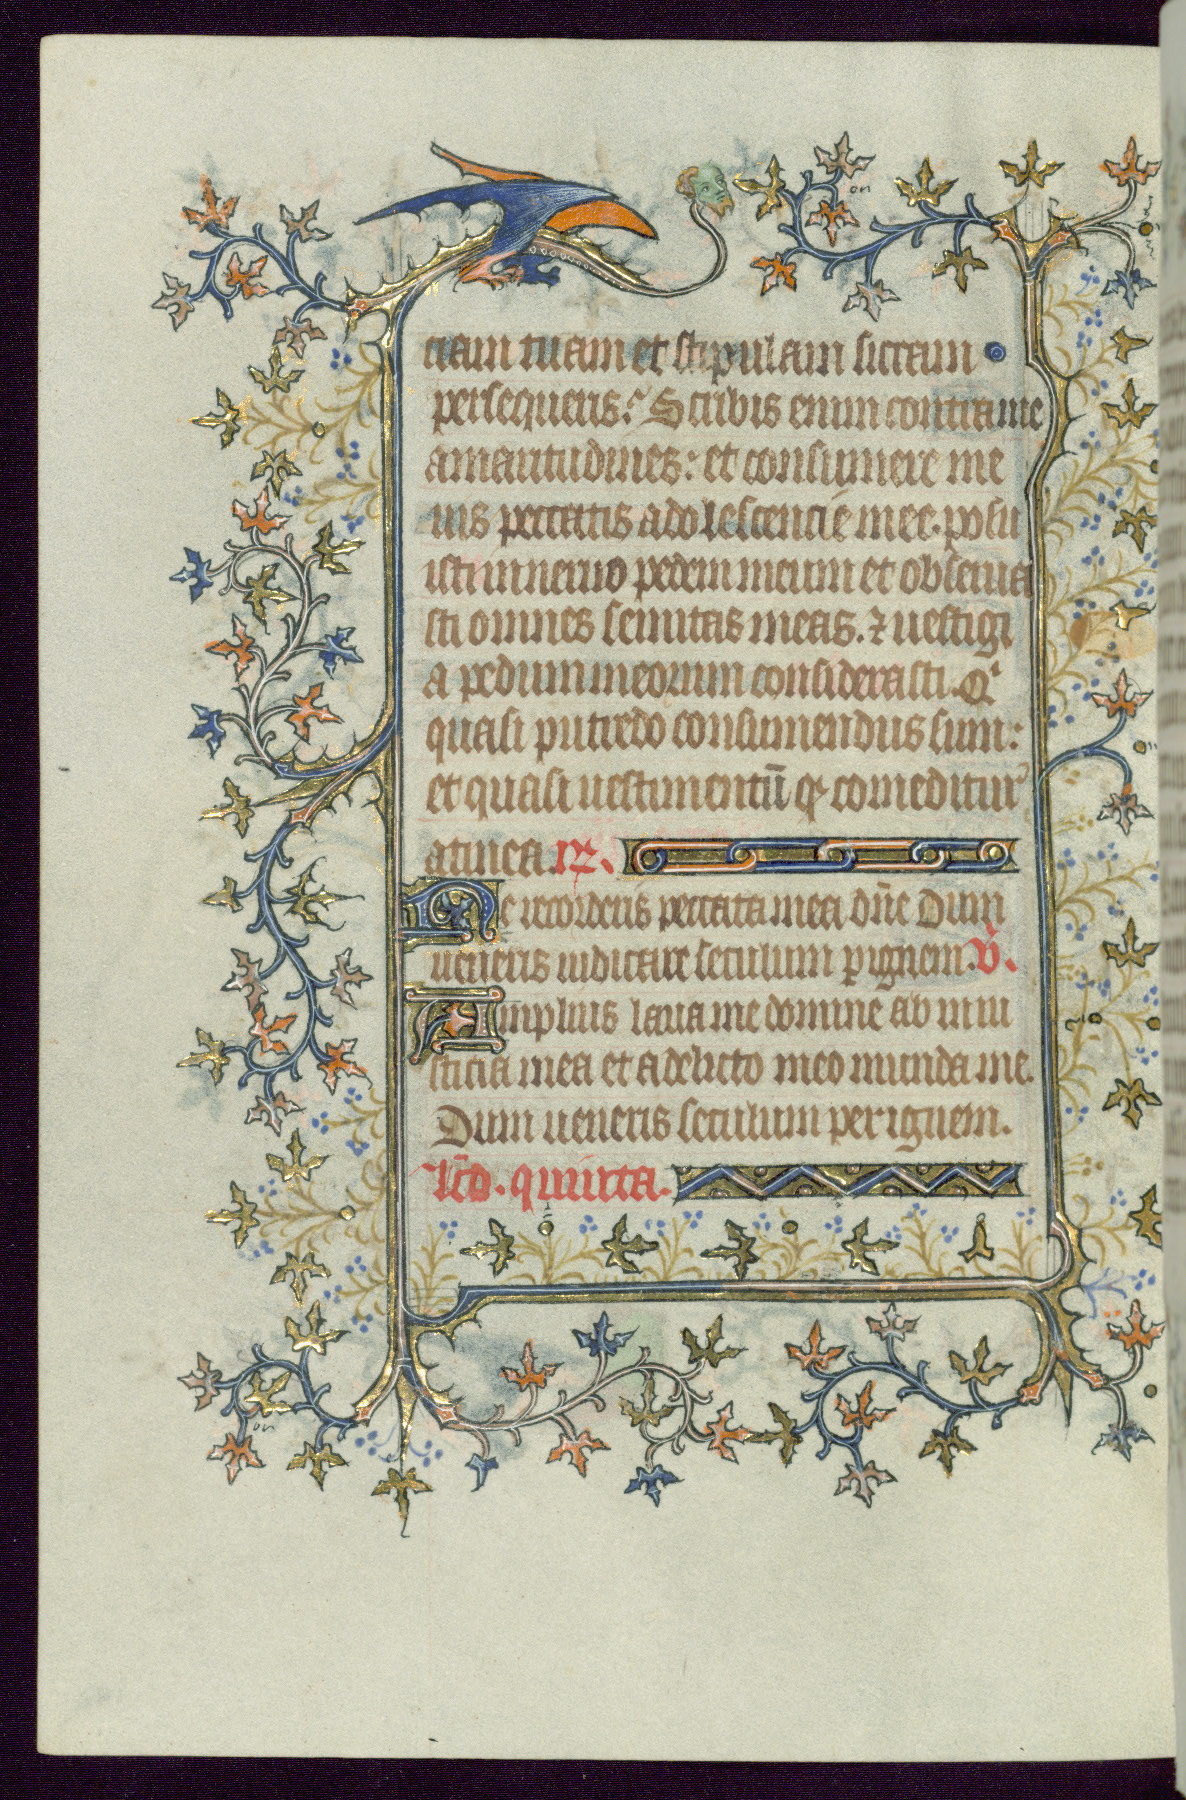 ciam tuam et stipulam siccam
persequeris: Scribis enim contra me
amaritudines: et consumere me
uis peccatis adolescencie mee. posu
isti in neruo pedem meum et obserua
sti omnes semitas meas. ⁊ uestigi
a pedum meorum considerasti. Qͥ
quasi putredo consumendus sum:
et quasi uestimentū qͥ comeditur
a tinea. R.
Ne recorderis peccata mea dn̄e Dum
ueneris iudicare seculum p ignem. V̄.
Amplius laua me domine ab iniu
sticia mea et a delicto meo munda me.
Dum ueneris seculum per ignem.
lc̄o. quinta.